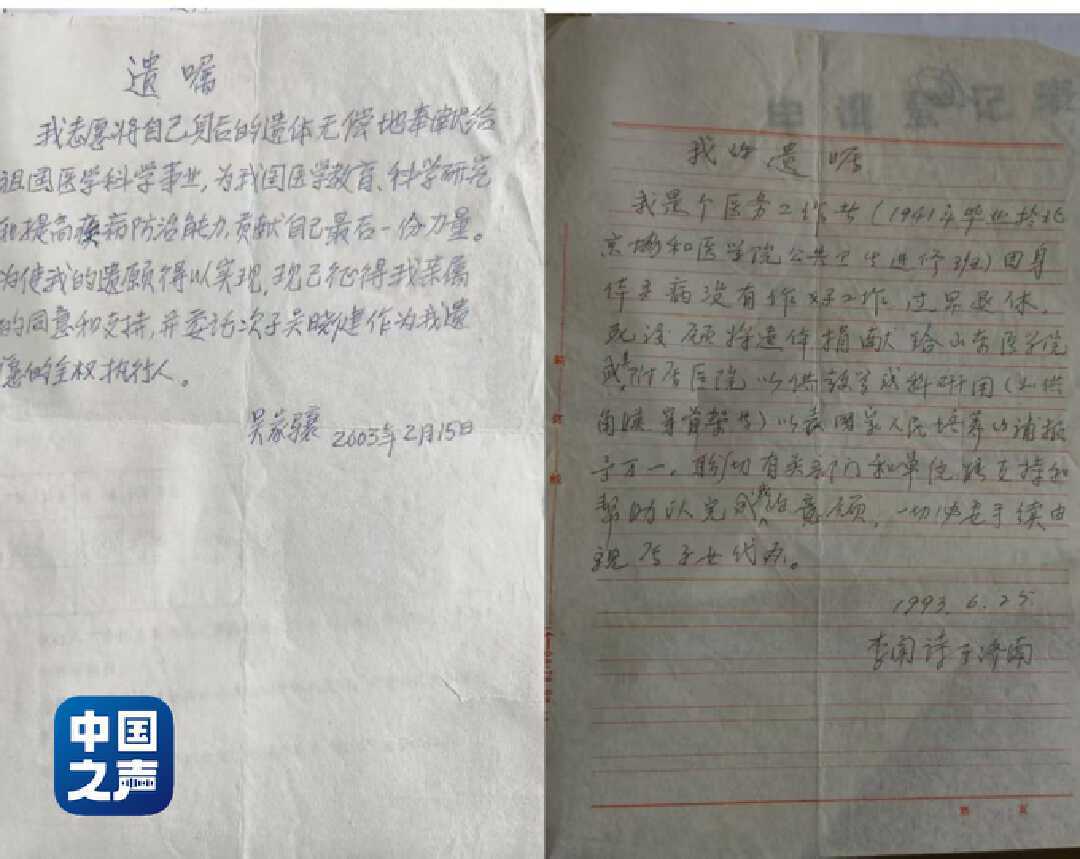 遗嘱
我志愿将自己身后的遗体无偿地奉献给
祖国医学科学事业,为我国医学教育、科学研究
和提高疾病防治能力,贡献自己最后一份力量。
为使我的遗愿得以实现,现已征得我亲属
的同意和支持,并委托次子吴晓健作为我遗
愿的全权执行人。
吴家骧 2003年2月15日
中国
之声
我的遗嘱
我是个医务工作者(1941年毕业于北
京协和医学院公共卫生进修班)因身
体多病没有作好工作 过早退休。
死后愿将遗体捐献给山东医学院
或其附属医院以供教学或科研用(如供
角膜 等)以表国家人民培养
于万一。盼切有关部门和单位 支持和
帮助以完成我的意愿,一切 手续由
子女代办。
1993.6.25
李闺诗于济南